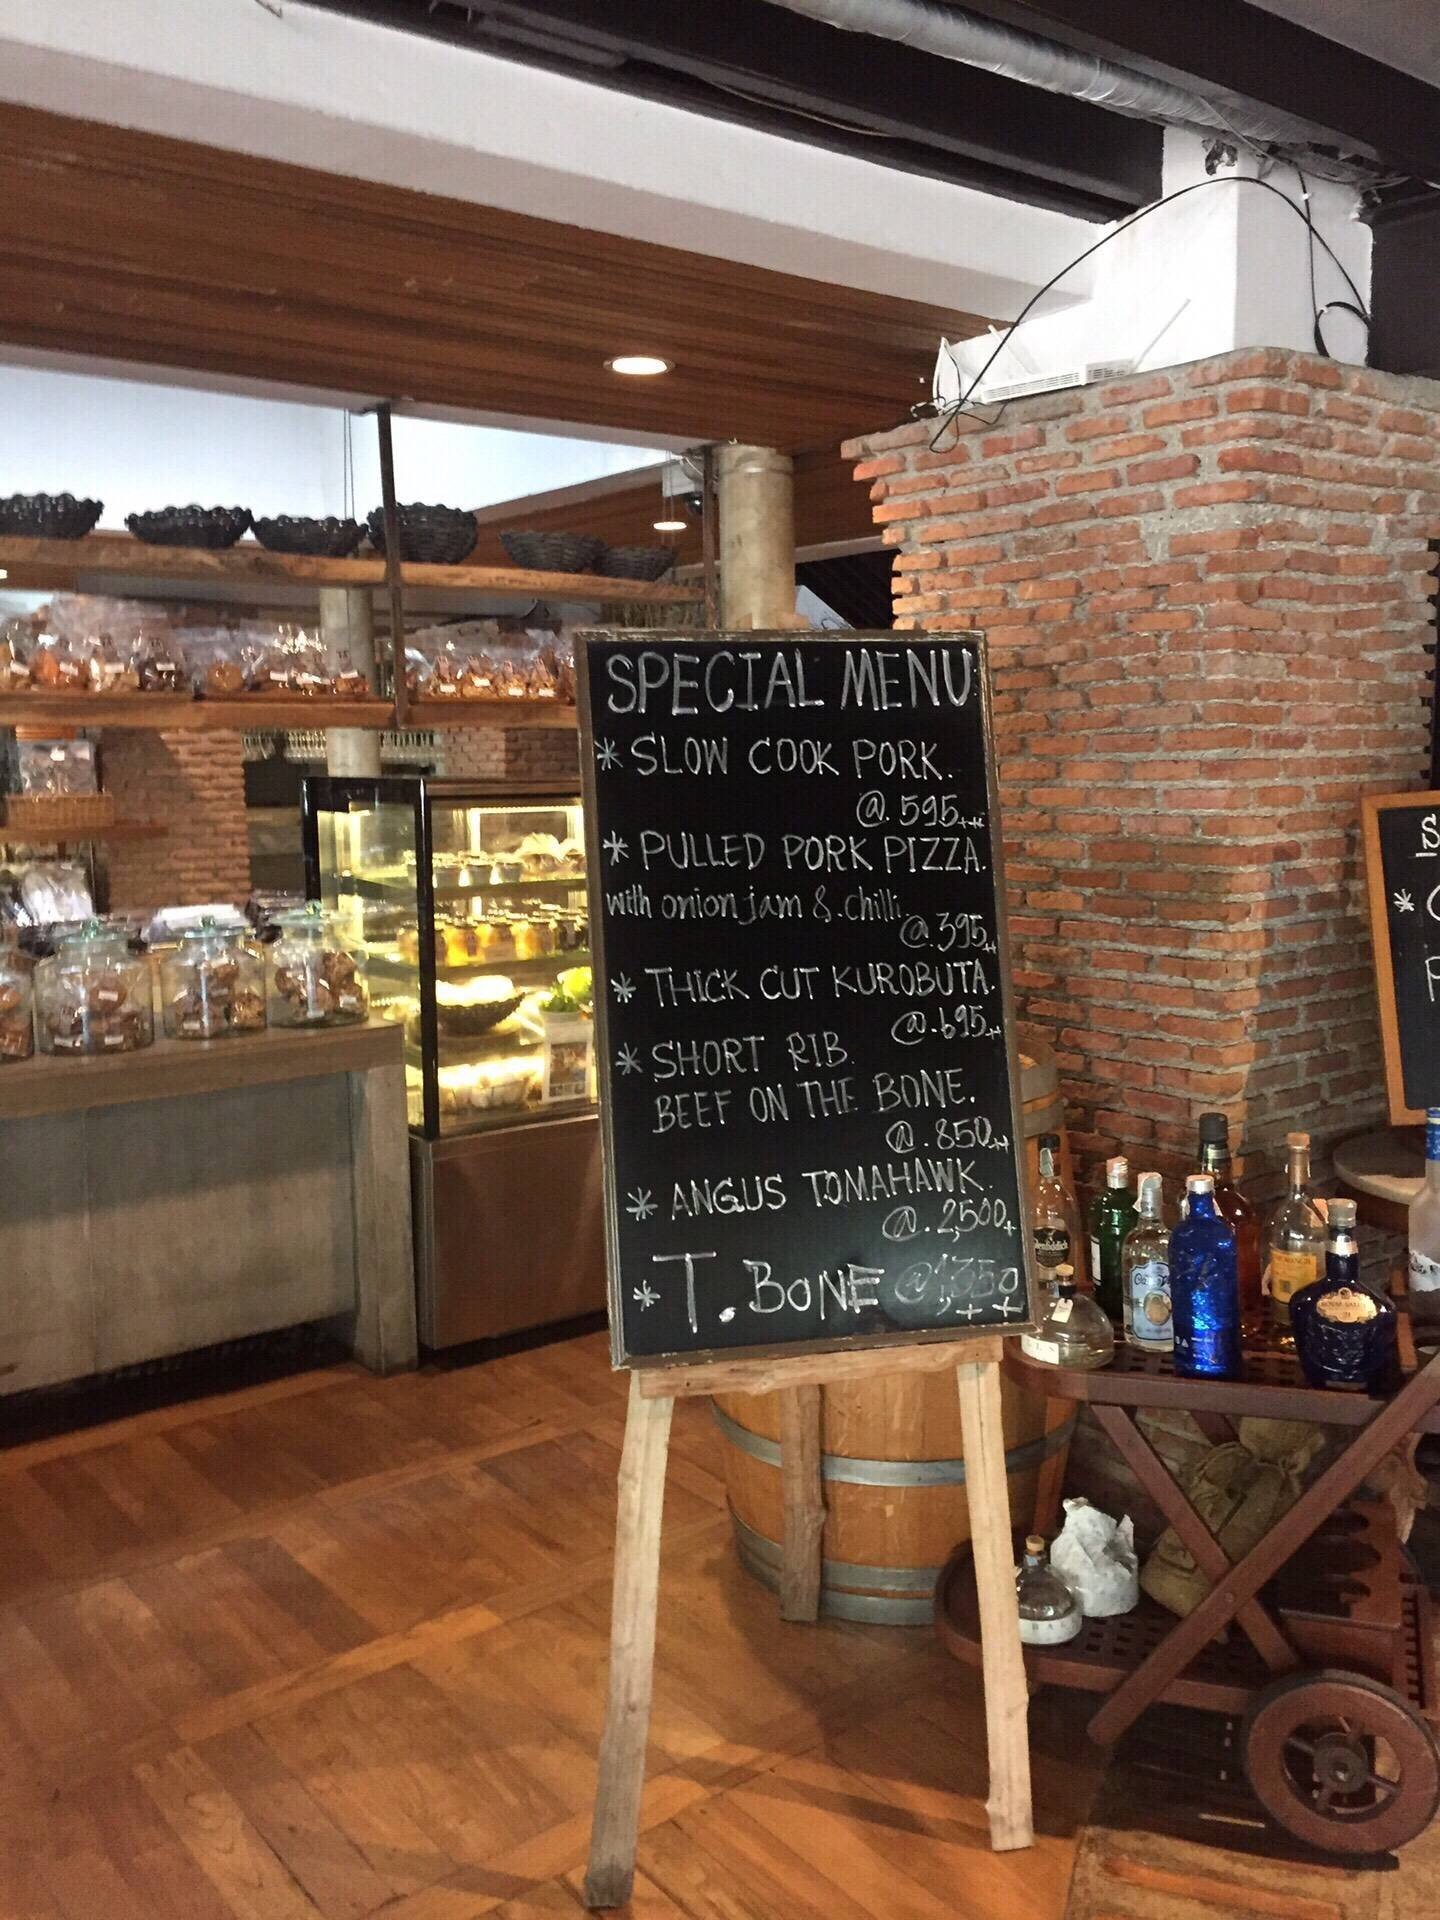 SPECIAL MENU
* SLOW COOK PORK.
@. 595++
* PULLED PORK PIZZA.
with onion jam & chilli.
@. 395++
* THICK CUT KUROBUTA.
@. 695++
* SHORT RIB.
BEEF ON THE BONE.
@. 850++
* ANGUS TOMAHAWK.
@. 2,500+
* T. BONE @1,350
++
S
*